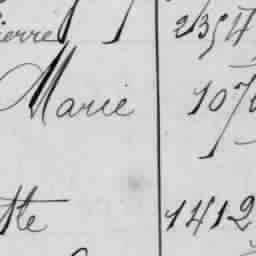 ierre 2354
Marie 107
tte 1412